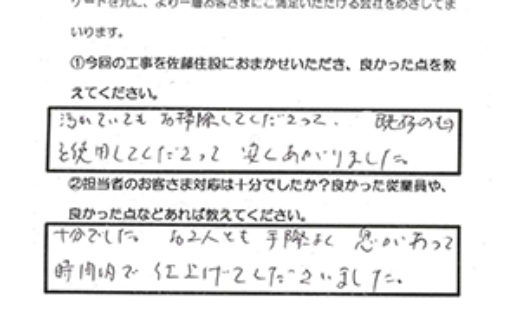 ケートを元に、より一層お客さまにご満足いただける会社をめざしてま
いります。
①今回の工事を佐藤住設におまかせいただき、良かった点を教
えてください。
汚れていても お掃除してくださって、 既存の
を使用してくださって 安くあがりました。
②担当者のお客さま対応は十分でしたか？良かった従業員や、
良かった点などあれば教えてください。
十分でした。 お2人とも 手際よく 息があって
時間内で 仕上げてくださいました。